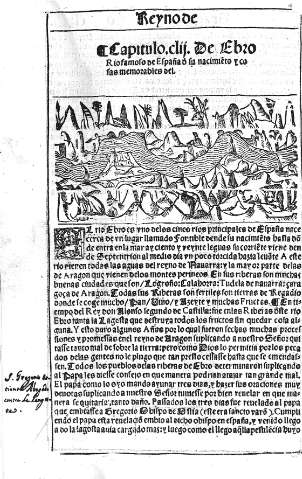 Reyno de
¶Capitulo.clij. De Ebro
Rio famoso de España ὁ su nacimiẽto y co
sas memorables del.
EL rio Ebro es vno delos cinco rios principales de España nace
cerca de vn lugar llamado Fontible donde la nacimiẽto hasta dõ
de entra en la mar ay ciento y veynte leguas su corriẽte viene den
de Septentrion al medio dia vn poco torcida hazia leuãte A este
rio vienen todas las aguas del reyno de Nauarra: y la mayor parte delas
de Aragon que vienen delos montes pirineos En sus riberas son muchas
buenas ciudades que son/Logroño: Calahorra: Tudela de nauarra: çara
goça de Aragon. Todas sus Riberas son fertiles son tierras de Regadio
donde se coge mucho/Pan/Vino/y Azeyte y muchas Fructas. ¶En tiẽ
tiempo del Rey don Alonso segundo de Castilla: fue en las Riberas deste rio
Ebro tanta la Lagosta que destruya todos los fructos sin quedar cosa al
guna. Y esto duro algunos Años por lo qual fueron fechas muchas proces
siones y promessas enel reyno de Aragon suplicando a nuestro Señor qui
tasse tanto mal de sobre la tierra: pero como Dios lo permitia por los peca
dos delas gentes no le plugo que tan presto cessasse hasta que se emendas
sen. Todos los pueblos destas riberas de Ebro determinaron suplicando
al Papa les diesse consejo en que manera podrian auitar tan grande mal.
El papa como lo oyo mando ayunar tres dias/y hazer sus oraciones muy
deuotas suplicando a nuestro Señor tuuiesse por bien reuelar en que ma
nera se quitaria/tanto daño. Passados los tres dias fue reuelado al papa
que embiasse a Gregorio Obispo de Ostia (este era sancto varõ). Cumpli
endo el papa esta reuelaciõ embio al dicho obispo en españa/y venido llego
a do la lagosta auia cargado mas: y luego como el llego aq̃lla pestilẽcia huyo
S. Gregorio